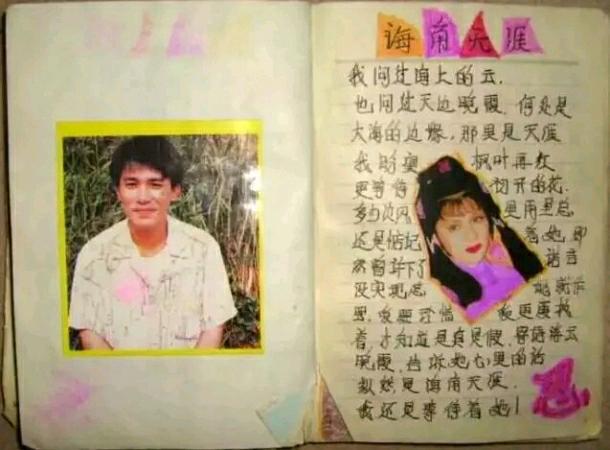 海角天涯
我问过海上的云.
也问过天边晚霞. 何处是
大海的边缘, 那里是天涯
我盼望 枫叶再红
更等待 初开的花.
多少次风 里雨里总
还是惦记 着她. 即
然曾许下了 诺言
没实现怎 能就作
罢. 我要珍惜 我更要找
着, 才知道是真是假. 寄语浮云
晚霞, 告诉她心里的话
纵然是海角天涯.
我还是等待着她!
忍